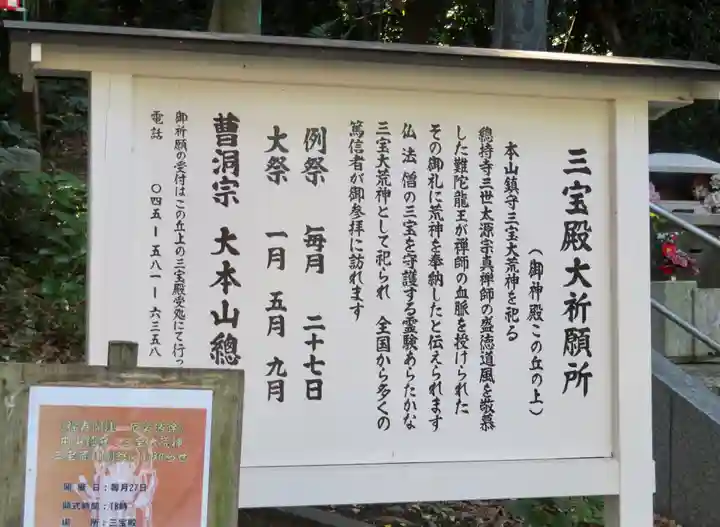 三宝殿大祈願所
(御神殿この丘の上)
本山鎮守三宝大荒神を祀る
總持寺三世太源宗真禅師の盛徳道風を敬慕
した難陀龍王が禅師の血脈を授けられた
その御礼に荒神を奉納したと伝えられます
仏 法 僧の三宝を守護する霊験あらたかな
三宝大荒神として祀られ 全国から多くの
篤信者が御参拝に訪れます
例祭 毎月 二十七日
大祭 一月 五月 九月
曹洞宗 大本山總
御祈願の受付はこの丘上の三宝殿受処にて行っ
電話 〇四五ー五八一ー六三五八
本山鎮守 三宝大荒神
開 催 日:毎月27日
開式時間:18時
場 所:三宝殿